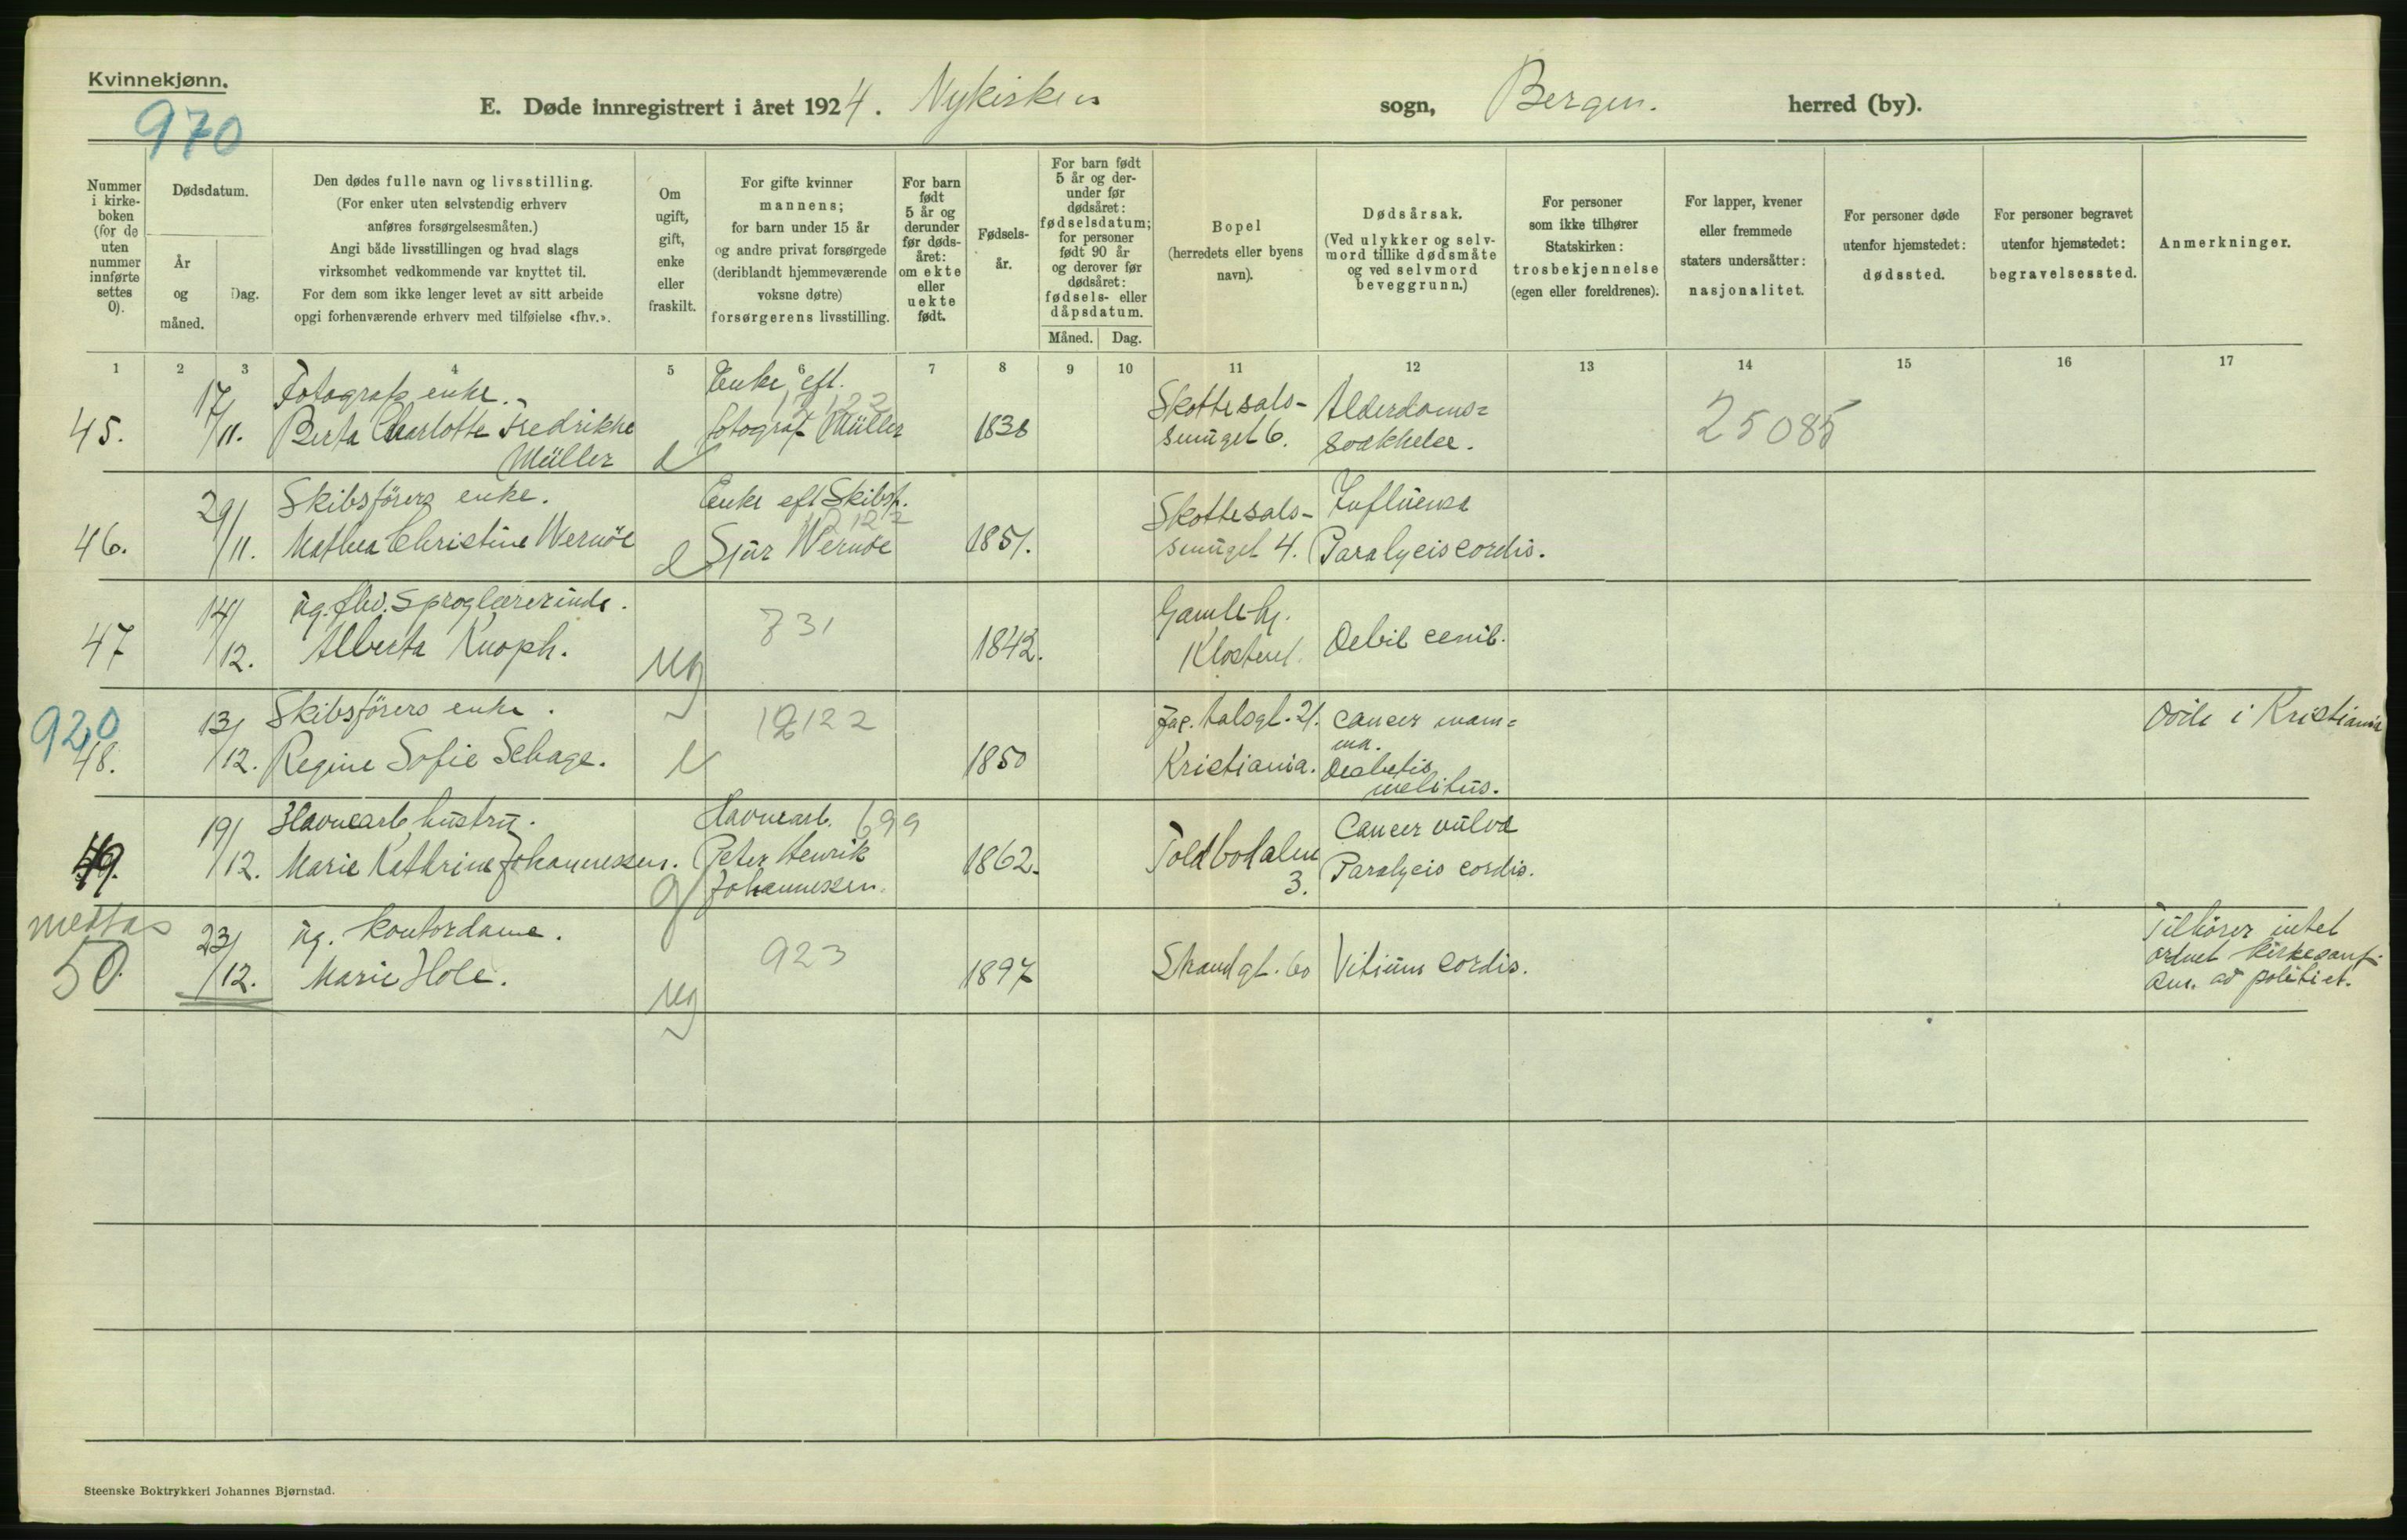 Kvinnekjønn.
970
E. Døde innregistrert i året 1924. Nykirken sogn, Bergen. herred (by).
Nummer i kirke-boken (for de uten nummer innførte settes 0).
Dødsdatum.
År og måned.
Dag.
Den dødes fulle navn og livsstilling.
(For enker uten selvstendig erhverv
anføres forsørgelsesmåten.)
Angi både livsstillingen og hvad slags
virksomhet vedkommende var knyttet til.
For dem som ikke lenger levet av sitt arbeide
opgi forhenværende erhverv med tilføielse «fhv.».
Om ugift, gift, enke eller fraskilt.
For gifte kvinner
mannens;
for barn under 15 år
og andre privat forsørgede
(deriblandt hjemmeværende
voksne døtre)
forsørgerens livsstilling.
For barn født 5 år og derunder før døds-året: om ekte eller uekte født.
Fødsels-år.
For barn født 5 år og der-under før dødsåret: fødselsdatum; for personer født 90 år og derover før dødsåret: fødsels- eller dåpsdatum.
Måned. Dag.
Bopel
(herredets eller byens
navn).
Dødsårsak.
(Ved ulykker og selv-
mord tillike dødsmåte
og ved selvmord
beveggrunn.)
For personer
som ikke tilhører
Statskirken:
trosbekjennelse
(egen eller foreldrenes).
For lapper, kvener
eller fremmede
staters undersåtter:
nasjonalitet.
For personer døde
utenfor hjemstedet:
dødssted.
For personer begravet
utenfor hjemstedet:
begravelsessted.
Anmerkninger.
1 2 3 4 5 6 7 8 9 10 11 12 13 14 15 16 17
45. 17/11. Fotografs enke.
Berta Charlotte Fredrikke
Müller
e
Enke eft.
fotograf Müller
1838
Skottesals-
smuget 6.
Alderdoms=
svakhelse.
25085
46. 29/11. Skibsførers enke.
Mathea Christine Wernöe
e
Enke eft Skibsf.
12122
Sjur Wernöe
1851.
Skottesals-
smuget 4.
Influensa
Paralycis cordis.
47 14/12. ug. fhv. Sproglærerinde.
Alberta Knoph.
ug
731
1842.
Gamle hj.
Klosteret.
Debil cenil.
920
48. 13/12. Skibsførers enke.
Regine Sofie Schage.
e
12122
1850
Jac. Aalsgt. 21.
Kristiania.
Cancer mam=
ma.
Deabetis
melitus.
Døde i Kristiania
49. 19/12. Havnearb. hustru.
Marie Kathrine Johannessen.
g
Havnearb. 699
Peter Henrik
Johannessen.
1862.
Toldbodalm
3.
Cancer vulva
Paralycis cordis.
50. 23/12. ug. kontordame.
Marie Hole.
ug
923
1897
Strandgt. 60
Vitium cordis.
Tilhører intet
ordnet kirkesamf.
Anm. av politiet.
Steenske Boktrykkeri Johannes Bjørnstad.